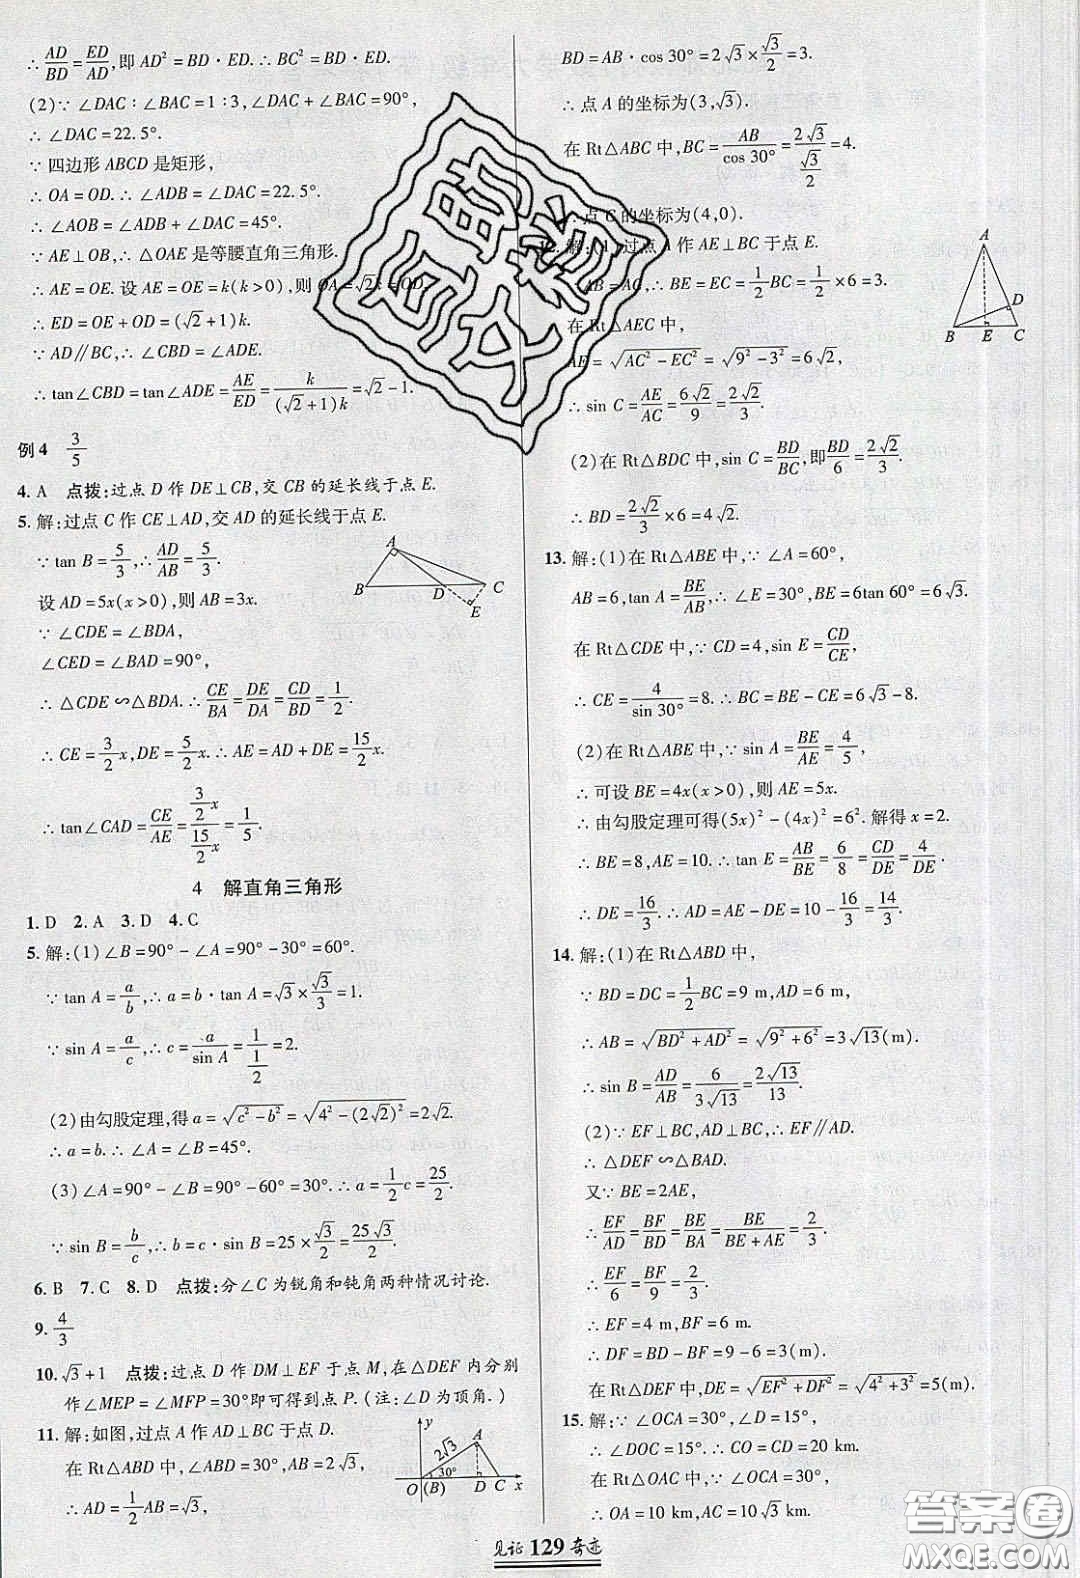 ∴ AD/BD = ED/AD, 即 AD² = BD · ED. ∴ BC² = BD · ED.
(2)∵ ∠DAC : ∠BAC = 1 : 3, ∠DAC + ∠BAC = 90°,
∴ ∠DAC = 22.5°.
∵ 四边形 ABCD 是矩形,
∴ OA = OD. ∴ ∠ADB = ∠DAC = 22.5°.
∴ ∠AOB = ∠ADB + ∠DAC = 45°.
∵ AE ⊥ OB, ∴ △OAE 是等腰直角三角形.
∴ AE = OE. 设 AE = OE = k(k > 0), 则 OA = √2k = OD.
∴ ED = OE + OD = (√2 + 1)k.
∵ AD // BC, ∴ ∠CBD = ∠ADE.
∴ tan∠CBD = tan∠ADE = AE/ED = k/((√2 + 1)k) = √2 - 1.
例4 3/5
4. A 点拨: 过点 D 作 DE ⊥ CB, 交 CB 的延长线于点 E.
5. 解: 过点 C 作 CE ⊥ AD, 交 AD 的延长线于点 E.
∵ tan B = 5/3, ∴ AD/AB = 5/3.
设 AD = 5x(x > 0), 则 AB = 3x.
∵ ∠CDE = ∠BDA,
∠CED = ∠BAD = 90°,
∴ △CDE ∽ △BDA. ∴ CE/BA = DE/DA = CD/BD = 1/2.
∴ CE = 3/2 x, DE = 5/2 x. ∴ AE = AD + DE = 15/2 x.
∴ tan∠CAD = CE/AE = (3/2 x)/(15/2 x) = 1/5.
A
B D C
E
4 解直角三角形
1. D 2. A 3. D 4. C
5. 解: (1) ∠B = 90° - ∠A = 90° - 30° = 60°.
∵ tan A = a/b, ∴ a = b · tan A = √3 × √3/3 = 1.
∵ sin A = a/c, ∴ c = a/sin A = 1/(1/2) = 2.
(2) 由勾股定理, 得 a = √(c² - b²) = √(4² - (2√2)²) = 2√2.
∴ a = b. ∴ ∠A = ∠B = 45°.
(3) ∠A = 90° - ∠B = 90° - 60° = 30°. ∴ a = 1/2 c = 25/2.
∵ sin B = b/c, ∴ b = c · sin B = 25 × √3/2 = 25√3/2.
6. B 7. C 8. D 点拨: 分∠C 为锐角和钝角两种情况讨论.
9. 4/3
10. √3 + 1 点拨: 过点 D 作 DM ⊥ EF 于点 M, 在 △DEF 内分别
作∠MEP = ∠MFP = 30°即可得到点 P. (注: ∠D 为顶角.)
11. 解: 如图, 过点 A 作 AD ⊥ BC 于点 D.
在 Rt△ABD 中, ∠ABD = 30°, AB = 2√3,
∴ AD = 1/2 AB = √3,
y
A
2√3
30°
O (B) D C x
BD = AB · cos 30° = 2√3 × √3/2 = 3.
∴ 点 A 的坐标为(3, √3).
在 Rt△ABC 中, BC = AB/cos 30° = 2√3/(√3/2) = 4.
∴ 点 C 的坐标为(4, 0).
12. 解: (1) 过点 A 作 AE ⊥ BC 于点 E.
∵ AB = AC, ∴ BE = EC = 1/2 BC = 1/2 × 6 = 3.
在 Rt△AEC 中,
AE = √(AC² - EC²) = √(9² - 3²) = 6√2,
∴ sin C = AE/AC = 6√2/9 = 2√2/3.
(2) 在 Rt△BDC 中, sin C = BD/BC, 即 BD/6 = 2√2/3.
∴ BD = 2√2/3 × 6 = 4√2.
A
D
B E C
13. 解: (1) 在 Rt△ABE 中, ∵ ∠A = 60°,
AB = 6, tan A = BE/AB, ∴ ∠E = 30°, BE = 6tan 60° = 6√3.
在 Rt△CDE 中, ∵ CD = 4, sin E = CD/CE,
∴ CE = 4/sin 30° = 8. ∴ BC = BE - CE = 6√3 - 8.
(2) 在 Rt△ABE 中, ∵ sin A = BE/AE = 4/5,
∴ 可设 BE = 4x(x > 0), 则 AE = 5x.
∴ 由勾股定理可得(5x)² - (4x)² = 6². 解得 x = 2.
∴ BE = 8, AE = 10. ∴ tan E = AB/BE = 6/8 = CD/DE = 4/DE.
∴ DE = 16/3. ∴ AD = AE - DE = 10 - 16/3 = 14/3.
14. 解: (1) 在 Rt△ABD 中,
∵ BD = DC = 1/2 BC = 9 m, AD = 6 m,
∴ AB = √(BD² + AD²) = √(9² + 6²) = 3√13(m).
∴ sin B = AD/AB = 6/(3√13) = 2√13/13.
(2)∵ EF ⊥ BC, AD ⊥ BC, ∴ EF // AD.
∴ △DEF ∽ △BAD.
又∵ BE = 2AE,
∴ EF/AD = BF/BD = BE/BA = BE/(BE + AE) = 2/3.
∴ EF/6 = BF/9 = 2/3.
∴ EF = 4 m, BF = 6 m.
∴ DF = BD - BF = 9 - 6 = 3(m).
在 Rt△DEF 中, DE = √(EF² + DF²) = √(4² + 3²) = 5(m).
15. 解: ∵ ∠OCA = 30°, ∠D = 15°,
∴ ∠DOC = 15°. ∴ CO = CD = 20 km.
在 Rt△OAC 中, ∵ ∠OCA = 30°,
∴ OA = 10 km, AC = 10√3 km.
见证 129 奇迹
答案圈
MXQE.COM